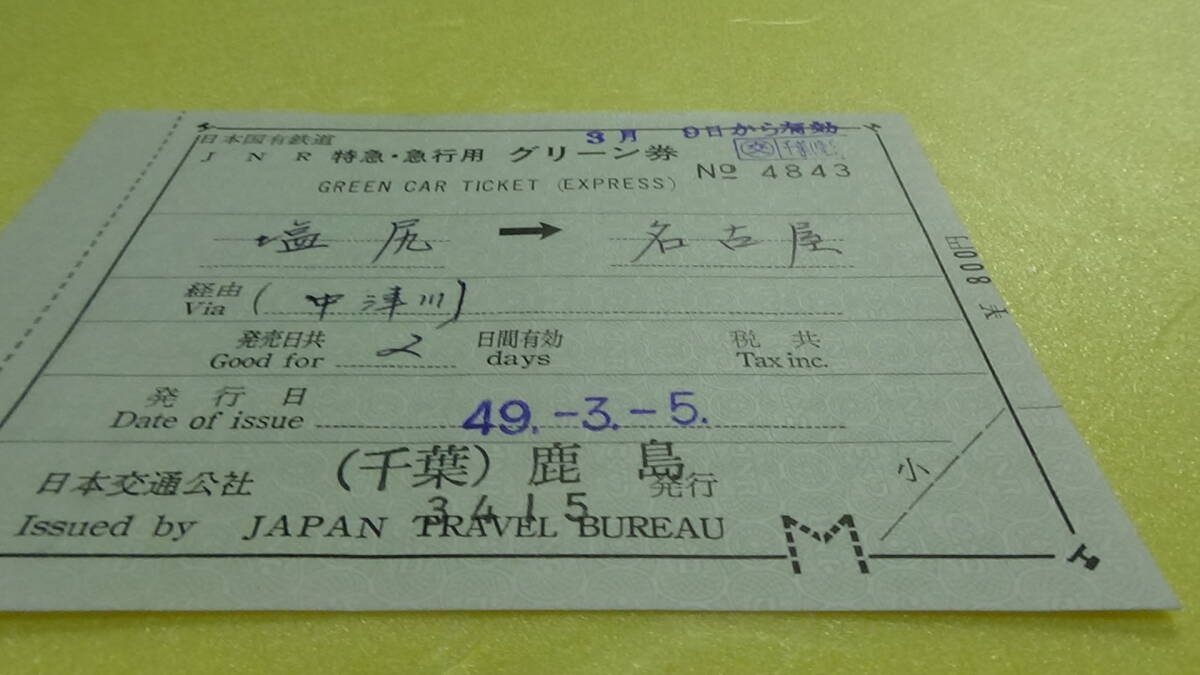 日本国有鉄道 3月 9日から有効
JNR 特急・急行用 グリーン券
GREEN CAR TICKET (EXPRESS) № 4843
塩尻 → 名古屋
経由 (中津川)
Via
発売日共 2 日間有効 税共
Good for days Tax inc.
発行日
Date of issue 49.-3.-5.
日本交通公社 (千葉) 鹿島 発行
3415
Issued by JAPAN TRAVEL BUREAU
小